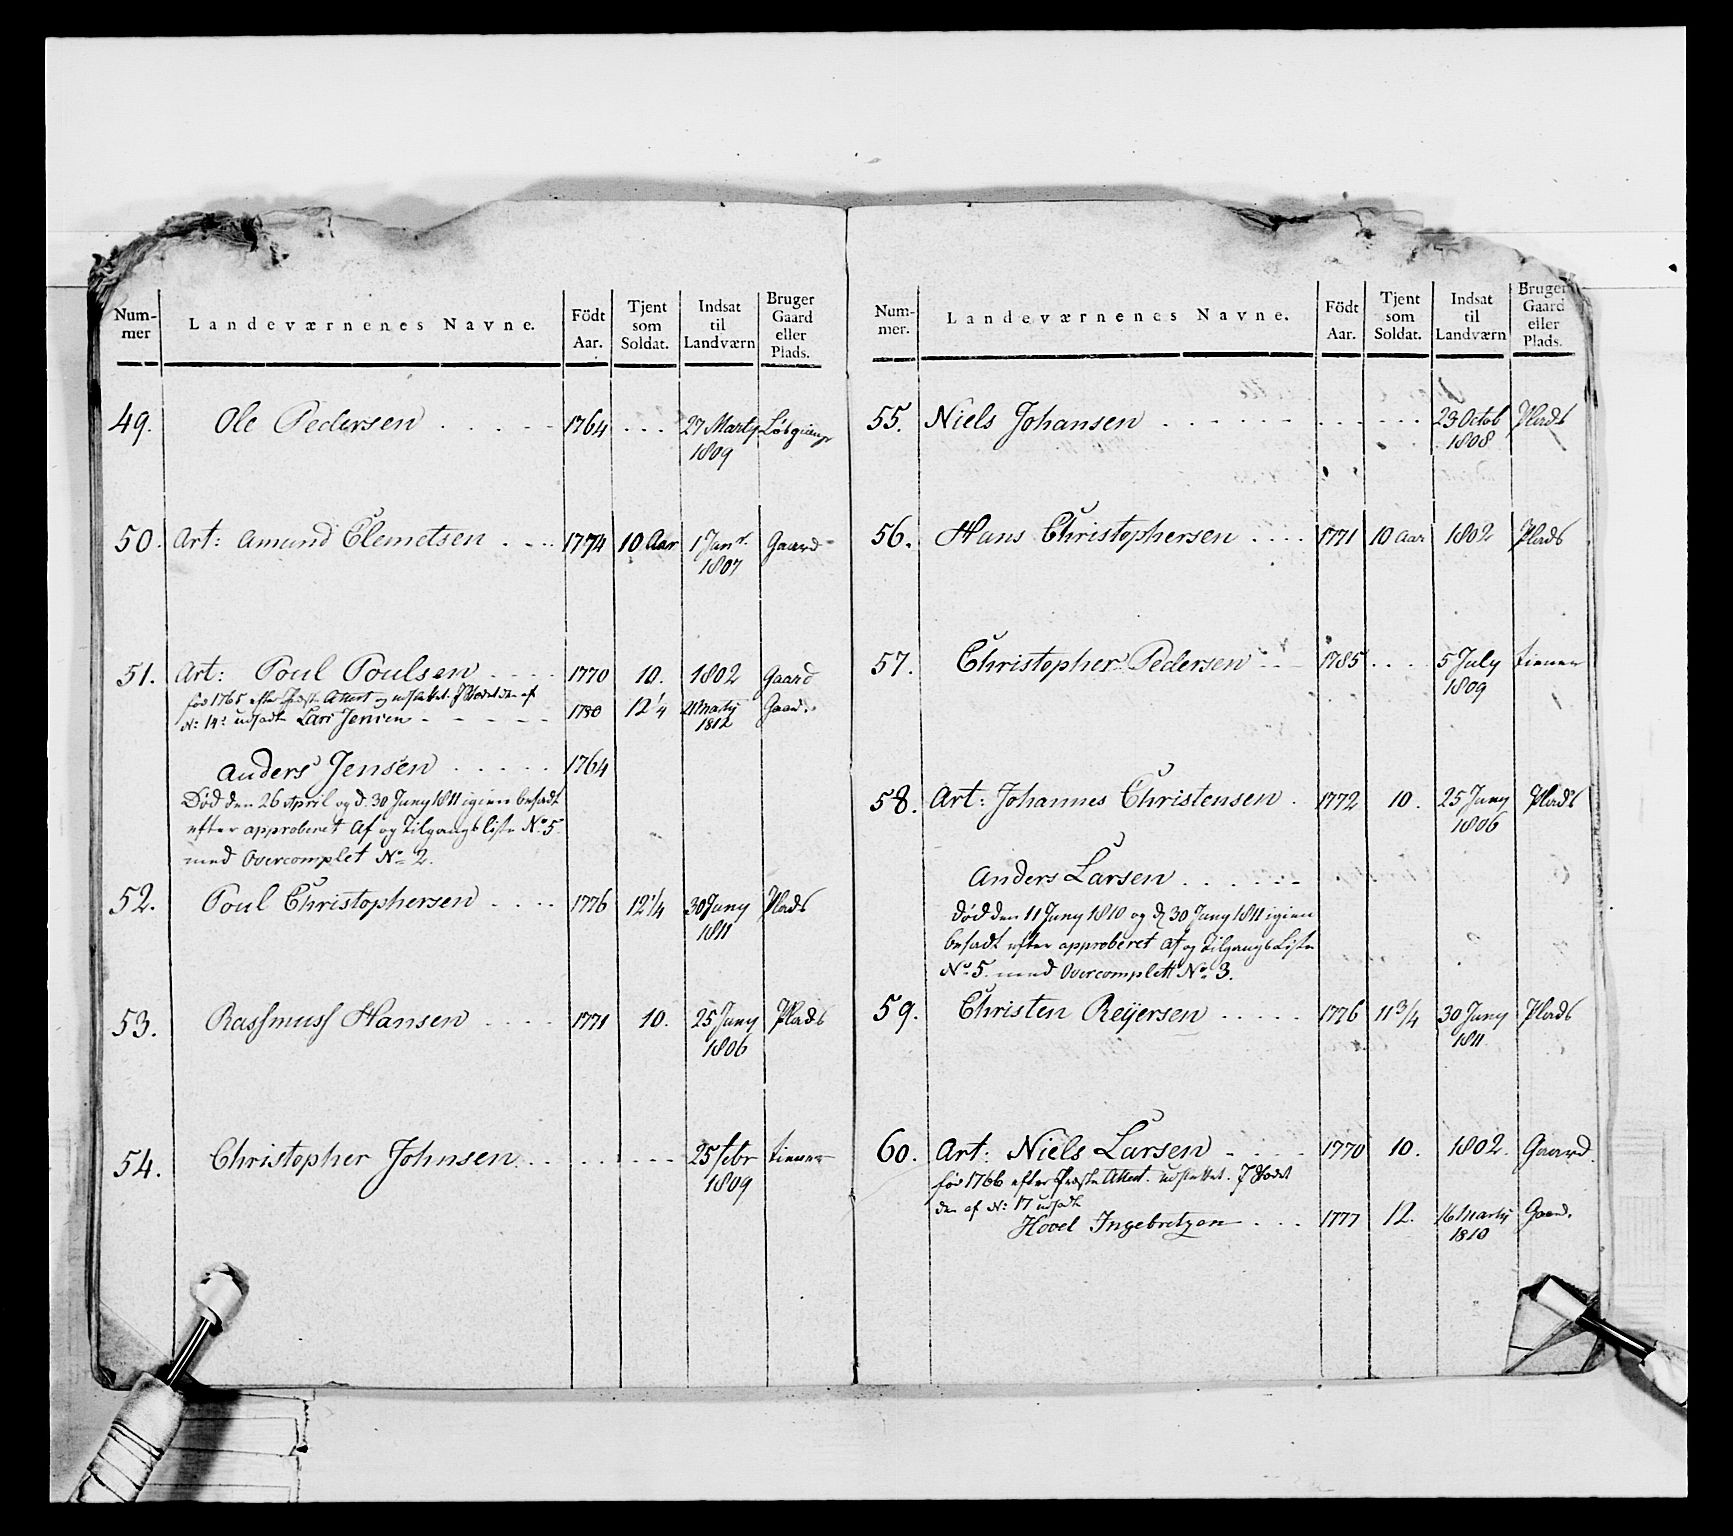 Num- Landeværnenes Navne. Födt Tjent Indsat Bruger
mer Aar. som til Gaard
Soldat. Landværn eller
Plads.
49. Ole Pedersen 1764 27 Martz
1809
50. Art: Amund Clemetsen 1774 10 Aar 1 Janr. Gaard
1807
51. Art: Poul Poulsen 1770 10. 1802 Gaard
fød 1765 efter Præste Attest og udslettet. J Stædet den af
No: 14: udsadte Lars Jensen 1780 12 1/4 21 Martz Gaard.
1812
Anders Jensen 1764
Død den 26 April og d. 30 Juny 1811 igien besadt
efter approberet Af og Tilgangs Liste No. 5.
med Overcomplet No 2.
52. Poul Christophersen 1776 12 1/4 30 Juny Plads
1811
53. Rasmuss Hansen 1771 10. 25 Juny Plads
1806
54. Christopher Johnsen 25 febr tiener
1809
Num- Landeværnenes Navne. Födt Tjent Indsat Bruger
mer. Aar. som til Gaard
Soldat. Landværn eller
Plads.
55. Niels Johansen 23 Octob Plads
1808
56. Hans Christophersen 1771 10 Aar 1802 Plads
57. Christopher Pedersen 1785 5 July tiener
1809
58. Art: Johannes Christensen 1772 10. 25 Juny Plads
1806
Anders Larsen
død den 11 Juny 1810 og d 30 Juny 1811 igien
besadt efter approberet Af og Tilgangs Liste
No. 5. med Overcomplett No 3.
59. Christen Reÿersen 1776 11 3/4 30 Juny Plads
1811
60. Art: Niels Larsen 1770 10. 1802. Gaard
fød 1766 efter Præste Attest. udslettet. J Stædet
den af No: 17 udsadte
Hovel Ingebretzen 1777 12. 16 Martz Gaard.
1810